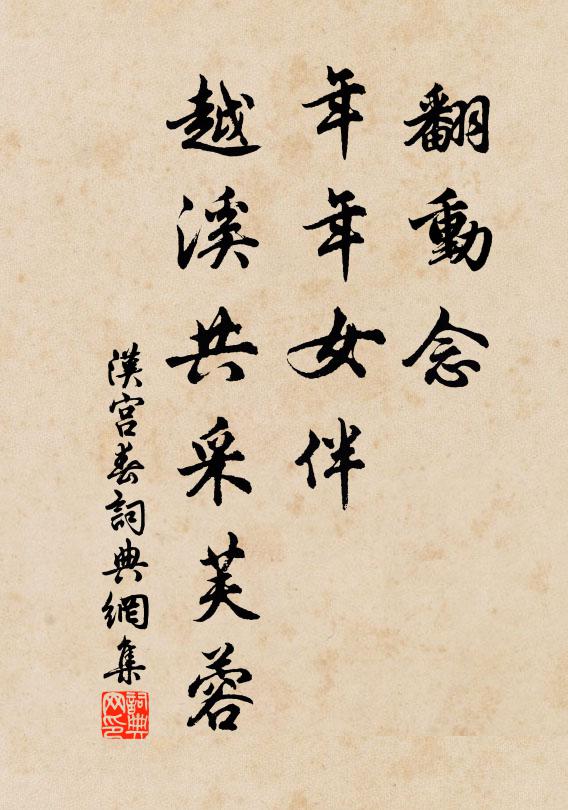 翻動念
年年女伴
越溪共采芙蓉
漢宮春詞典網集
詞典網印